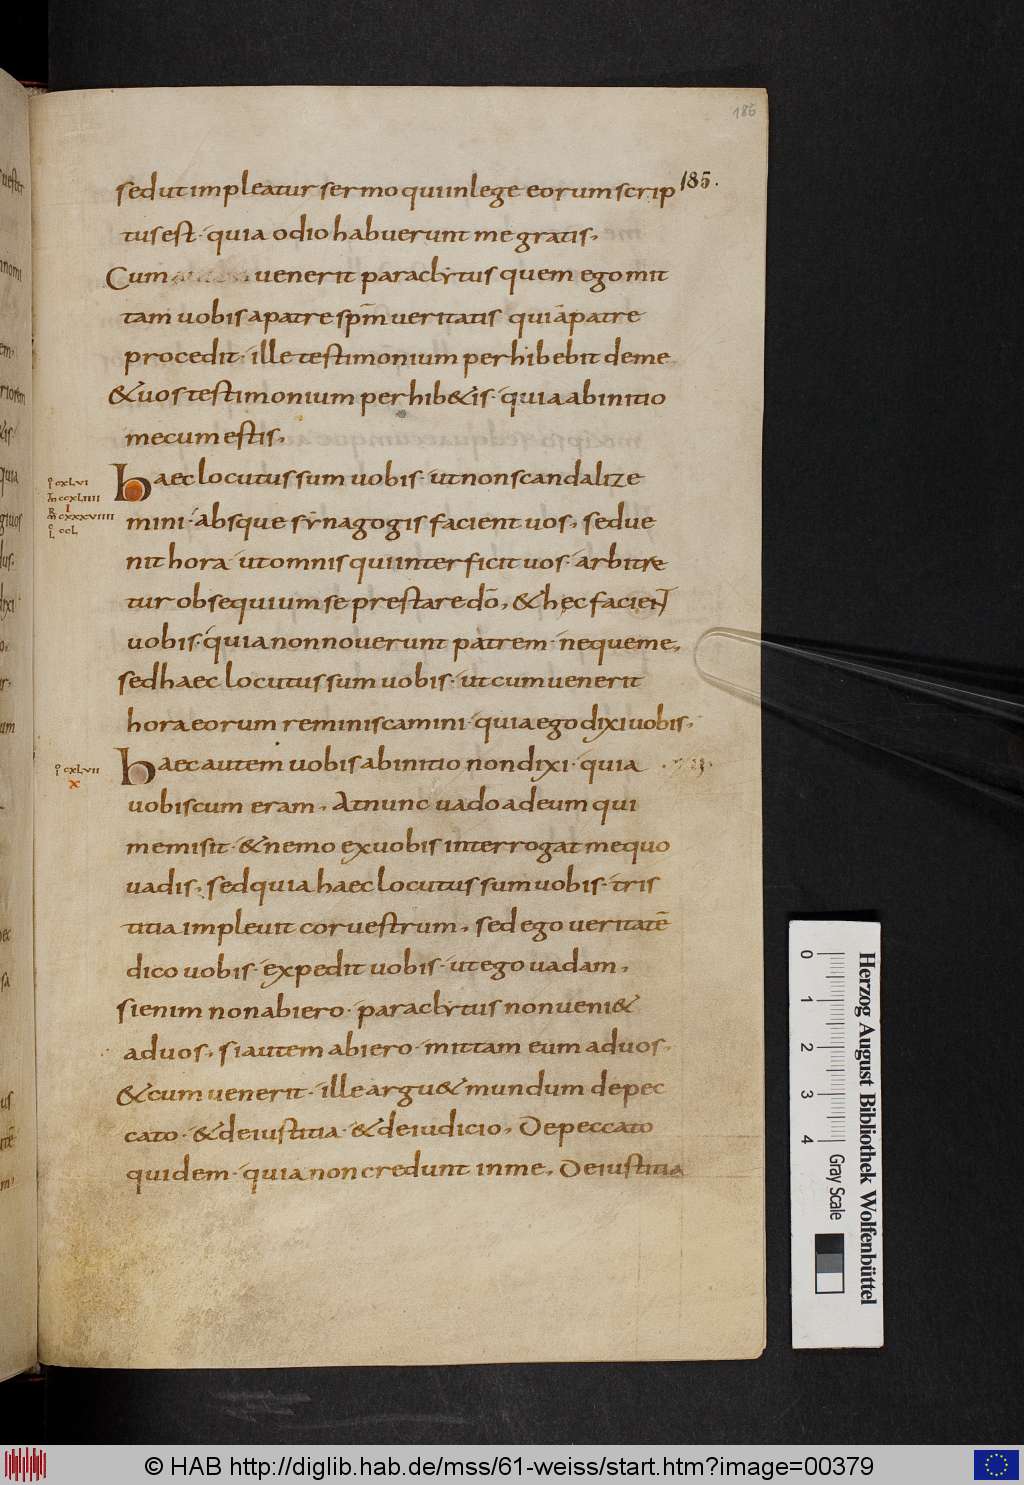 186
185.
sed ut impleatur sermo qui in lege eorum scrip
tus est· quia odio habuerunt me gratis,
Cum autem venerit paraclytus quem ego mit
tam vobis a patre spm̄ veritatis qui a patre
procedit· ille testimonium perhibebit de me
& vos testimonium perhib&is· quia ab initio
mecum estis,
Haec locutus sum vobis· ut non scandalize
mini· absque synagogis facient vos, sed ve
nit hora ut omnis qui interficit vos· arbitre
tur obsequium se prestare dō, & hęc facient
vobis· quia non noverunt patrem· neque me,
sed haec locutus sum vobis· ut cum venerit
hora eorum reminiscamini· quia ego dixi vobis,
Haec autem vobis ab initio non dixi· quia
vobiscum eram, At nunc vado ad eum qui
me misit· & nemo ex vobis interrogat me quo
vadis, sed quia haec locutus sum vobis· tris
titia implevit cor vestrum, sed ego veritatē
dico vobis· expedit vobis· ut ego vadam,
si enim non abiero· paraclytus non veni&
ad vos, si autem abiero· mittam eum ad vos,
& cum venerit· ille argu& mundum de pec
cato· & de iustitia· & de iudicio, De peccato
quidem· quia non credunt in me, De iustitia
cxlvi
ccxliiii
cxxxviiii
I
ccl
cxlvii
x
0 1 2 3 4
Gray Scale
Herzog August Bibliothek Wolfenbüttel
© HAB http://diglib.hab.de/mss/61-weiss/start.htm?image=00379